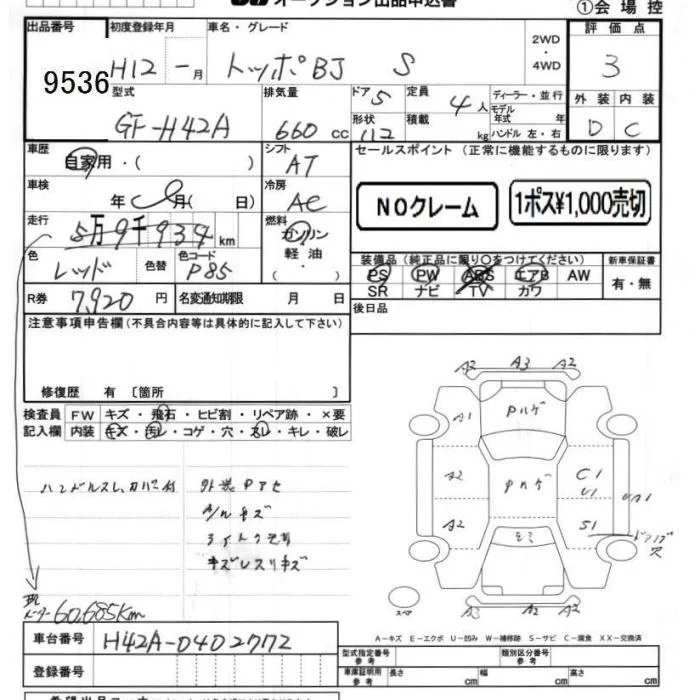 オークション出品申込書
①会場控
出品番号 初度登録年月 車名・グレード 2WD・4WD 評価点
9536 H12 - 月 トッポBJ S 3
型式 排気量 ドア 5 定員 4 人 ディーラー・並行 外装 内装
GF-H42A 660 cc 形状 積載 kg モデル年式 年 D C
112 ハンドル 左・右
車歴 シフト セールスポイント (正常に機能するものに限ります)
自家用・( ) AT
車検 冷房 NOクレーム 1ポス¥1,000売切
年 月( 日) AC
走行 燃料
5万9千934 km ガソリン
色 色替 色コード 軽油・ 装備品(純正品に限り○をつけてください) 新車保証書
レッド P85 ( ) PS PW ABS エアB AW 有・無
R券 7,920 円 名変通知期限 月 日 SR ナビ TV カワ
注意事項申告欄(不具合内容等は具体的に記入して下さい) 後日品
修復歴 有 〔箇所 〕
検査員 FW キズ・飛石・ヒビ割・リペア跡・×要
記入欄 内装 キズ・汚レ・コゲ・穴・スレ・キレ・破レ
A2 A3 A2
A1 Pハゲ
A2 Pハゲ C1
U1
A2 S1
ハンドルスレ,カバー付 外装Pアセ
A/Wキズ
キズレスリキズ
スペア A3 A2 A2
60,685Km
A-キズ E-エクボ U-凹み W-補修跡 S-サビ C-腐食 XX-交換済
車台番号 H42A-0402772
型式指定番号 参考 類別区分番号 参考
登録番号 車庫証明用 参考 長さ cm 幅 cm 高さ cm